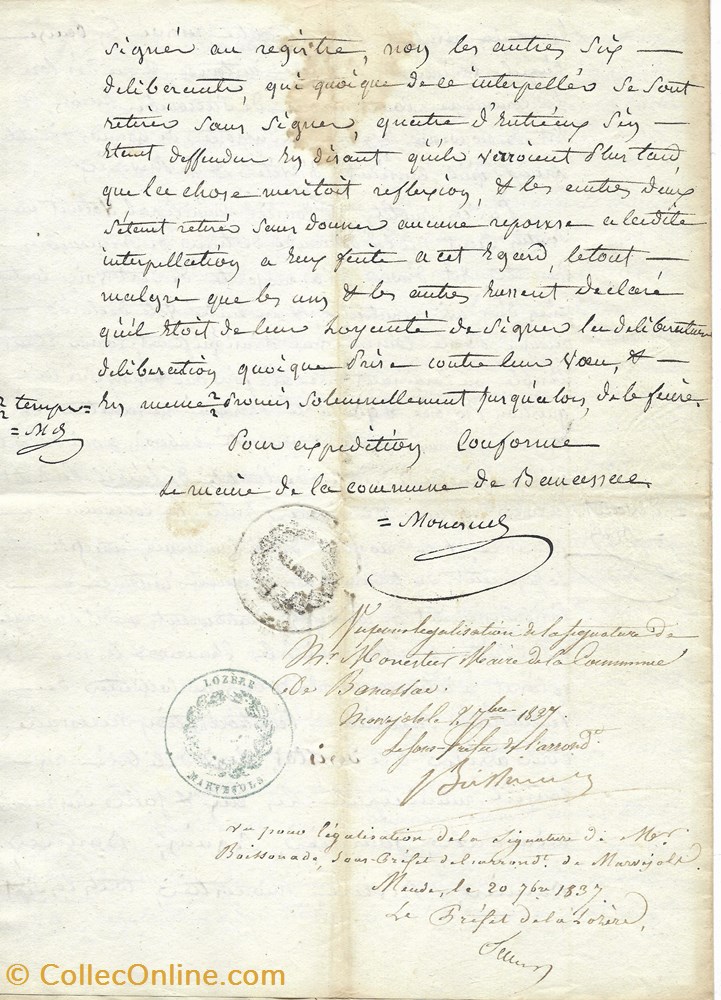 signér au registre, non les autres six —
deliberants, qui quoique de ce interpellés se sont
retirés sans signer, quatre d'Entréux s'en —
Etant deffendus En disant quils verroient Plus tard,
que la chose meritoit reflexion, & les autres deux
s'étant retirés sans donner aucune reponse a ladite
interpellation a Eux faite a cet Egard, le tout —
malgré que les uns & les autres Eussent declaré
quil Etoit de leur de signer la deliberation
deliberation quoique Prise contre leur Vœu, & —
En meme Promis solemnellement jusqu'alors, de le faire.
temps =
= M
Pour expedition Conforme
Le maire de la commune de Banassac
= Monestier
MAIRIE
Vu pour legalisation de la signature de
Mr. Monestier Maire de la Commune
De Banassac.
Marvejols le 7bre 1837.
Le Sous-Préfet de l'arrondt.
LOZERE
MARVEJOLS
Vu pour légalisation de la Signature de Mr.
Boissonade, Sous-Préfet de l'arrondt. de Marvejols.
Mende, le 20 7bre 1837.
Le Préfet de la Lozère,
© CollecOnline.com